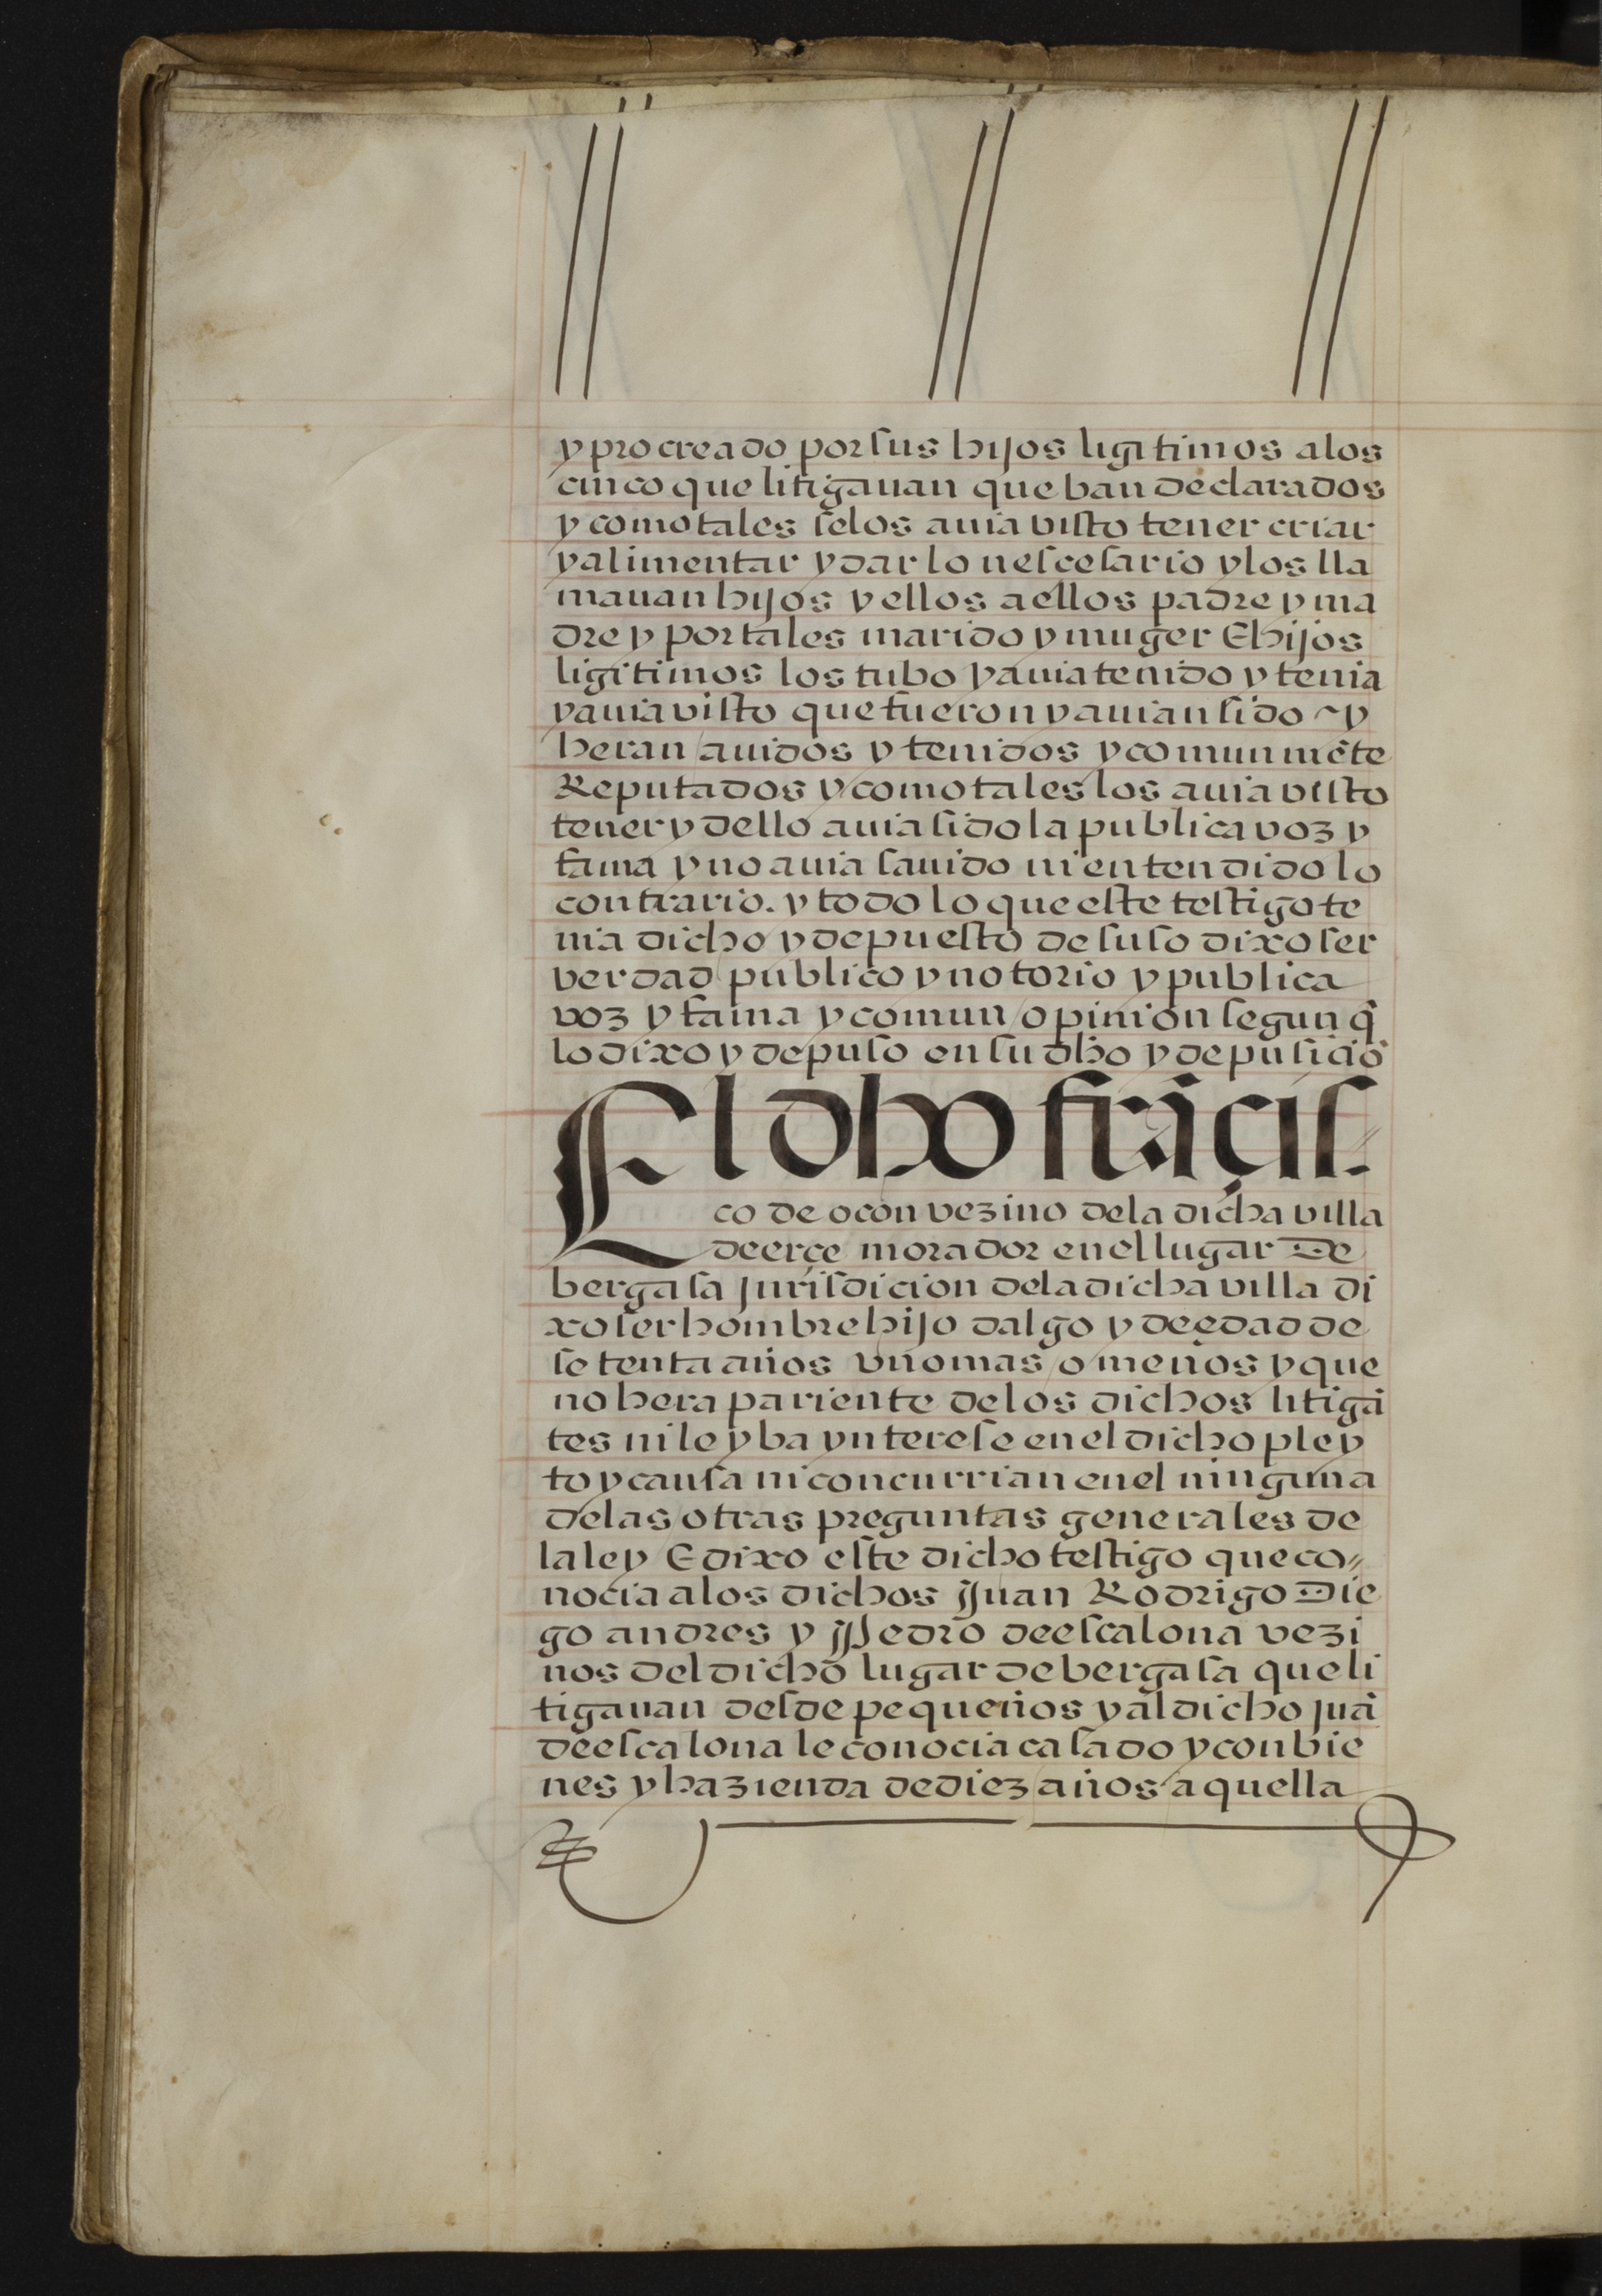 y procreado por sus hijos ligitimos a los
cinco que litigauan que ban declarados
y como tales se los auia visto tener criar
y alimentar y dar lo nescesario y los lla
mauan hijos y ellos a ellos padre y ma
dre y por tales marido y muger E hijos
ligitimos los tubo y auia tenido y tenia
y auia visto que fueron y auian sido ~ y
heran auidos y tenidos y comunmẽte
Reputados y como tales los auia visto
tener y dello auia sido la publica voz y
fama y no auia sauido ni entendido lo
contrario. y todo lo que este testigo te
nia dicho y depuesto de suso dixo ser
verdad publico y notorio y publica
voz y fama y comun opinion segun q̃
lo dixo y depuso en su dho y depusiciõ
El dho frãçis-
co de ocon vezino de la dicha villa
de erçe morador en el lugar De
bergasa jurisdicion de la dicha villa di
xo ser hombre hijo dalgo y de edad de
setenta años vno mas o menos y que
no hera pariente de los dichos litigã
tes ni le yba ynterese en el dicho pley
to y causa ni concurrian en el ninguna
de las otras preguntas generales de
la ley E dixo este dicho testigo que co//
nocia a los dichos Juan Rodrigo Die
go andres y Pedro de escalona vezi
nos del dicho lugar de bergasa que li
tigauan desde pequeños y al dicho juã
de escalona le conocia casado y con bie
nes y hazienda de diez años a quella